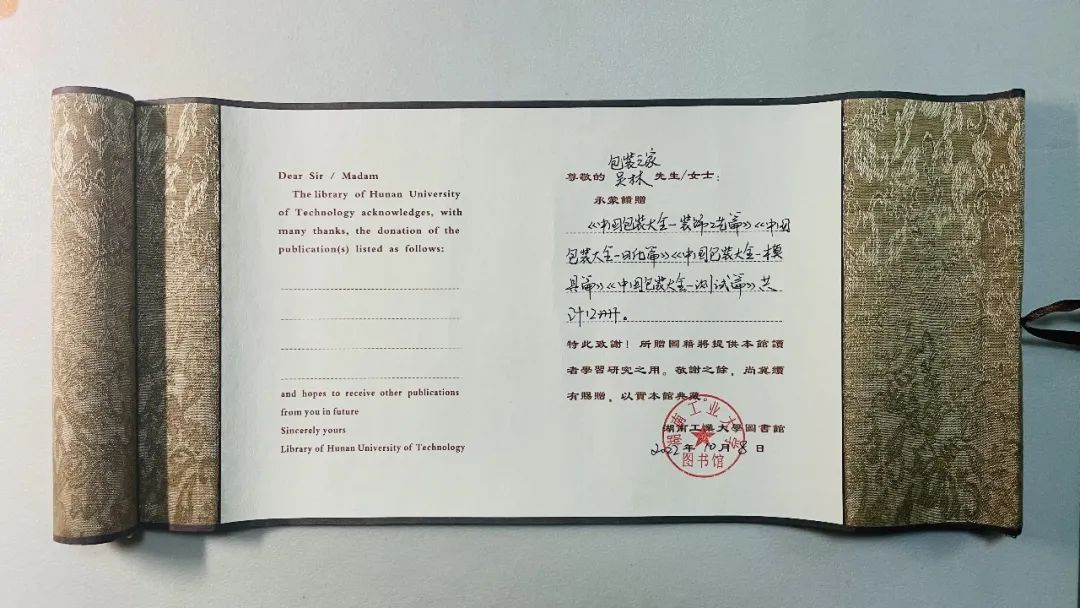 Dear Sir / Madam
The library of Hunan University
of Technology acknowledges, with
many thanks, the donation of the
publication(s) listed as follows:
and hopes to receive other publications
from you in future
Sincerely yours
Library of Hunan University of Technology
包装之家
尊敬的 吴林 先生/女士：
承蒙饋贈
《中国包装大全-装饰工艺篇》《中国
包装大全-日化篇》《中国包装大全-模
具篇》《中国包装大全-测试篇》共
计12册。
特此致謝！所贈圖籍將提供本館讀
者學習研究之用。敬謝之餘，尚冀續
有賜贈，以實本館典藏。
湖南工業大學圖書館
2022年10月8日
湖南工业大学
图书馆